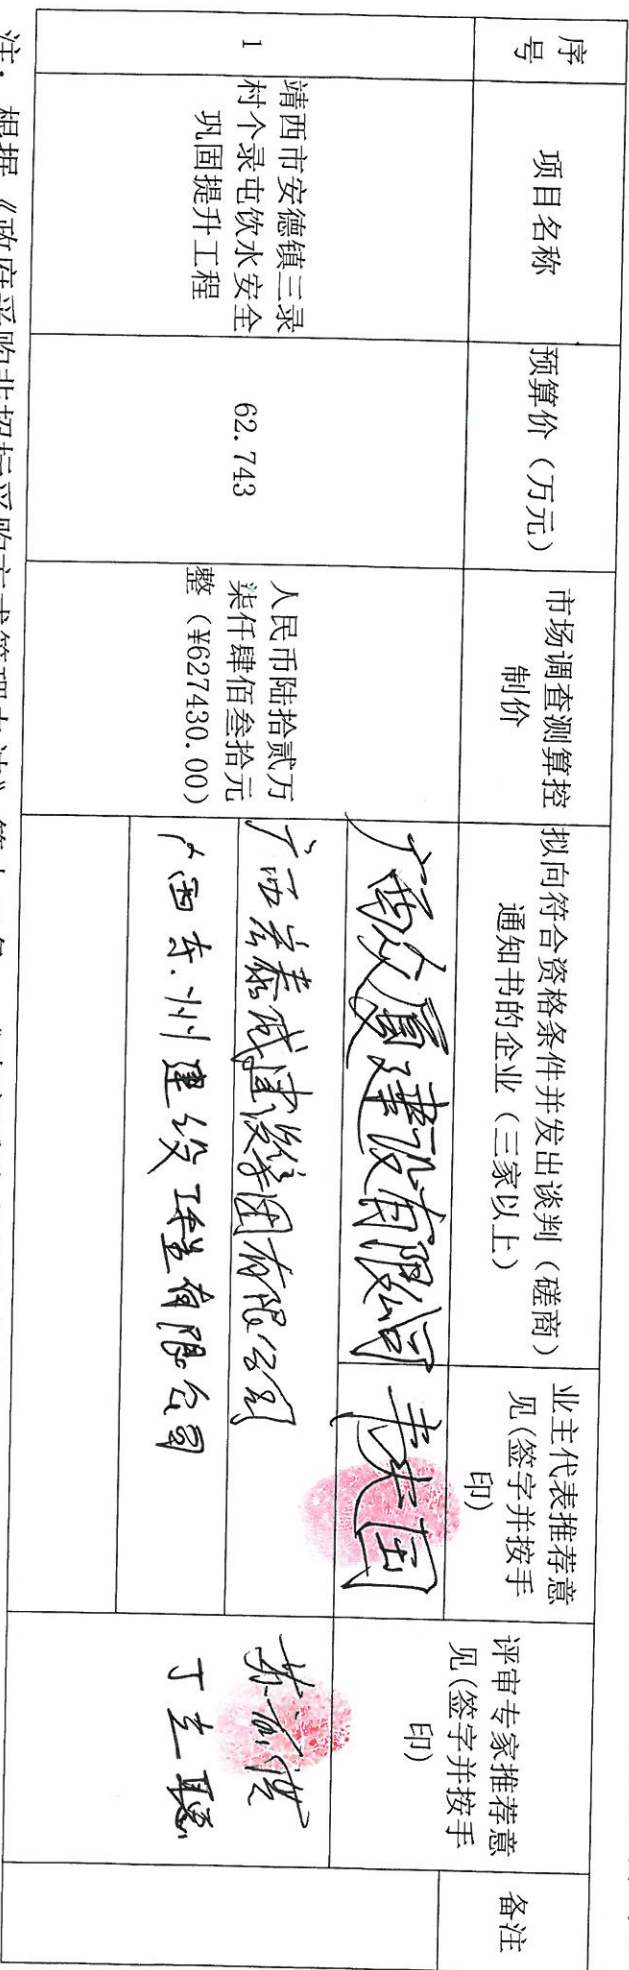 序号
项目名称
预算价（万元）
市场调查测算控
制价
拟向符合资格条件并发出谈判（磋商）
通知书的企业（三家以上）
业主代表推荐意
见(签字并按手
印)
评审专家推荐意
见(签字并按手
印)
备注
1
靖西市安德镇三录
村个录屯饮水安全
巩固提升工程
62.743
人民币陆拾贰万
柒仟肆佰叁拾元
整（¥627430.00）
广西众厦建设有限公司
广西宏泰成建设集团有限公司
广西东州建设工程有限公司
丁立聪
注：根据《政府采购非招标采购方式管理办法》第十